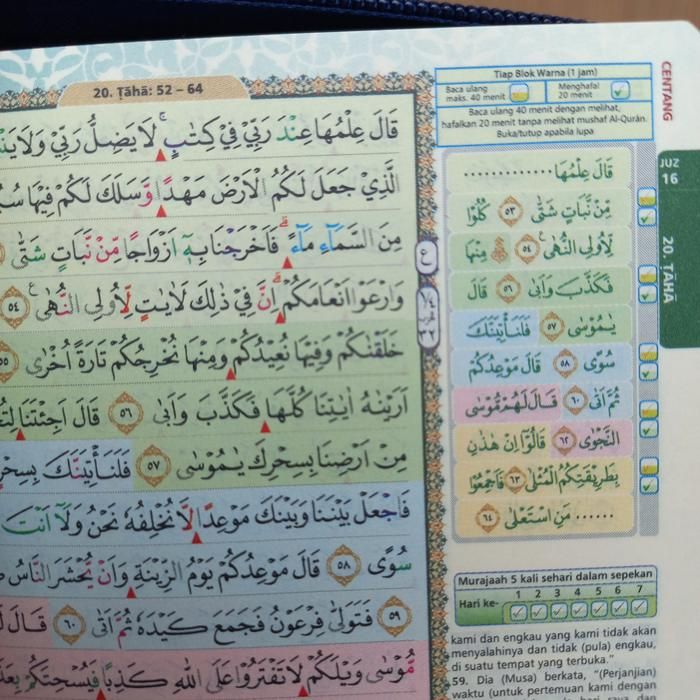 20. Ṭāhā: 52 – 64
قَالَ عِلْمُهَا عِنْدَ رَبِّيْ فِيْ كِتٰبٍۚ لَا يَضِلُّ رَبِّيْ وَلَا
الَّذِيْ جَعَلَ لَكُمُ الْاَرْضَ مَهْدًا وَّسَلَكَ لَكُمْ فِيْهَا
مِنَ السَّمَاۤءِ مَاۤءًۗ فَاَخْرَجْنَا بِهٖٓ اَزْوَاجًا مِّنْ نَّبَاتٍ شَتّٰى
وَارْعَوْا اَنْعَامَكُمْۗ اِنَّ فِيْ ذٰلِكَ لَاٰيٰتٍ لِّاُولِى النُّهٰى ࣖ ٥٤
خَلَقْنٰكُمْ وَفِيْهَا نُعِيْدُكُمْ وَمِنْهَا نُخْرِجُكُمْ تَارَةً اُخْرٰى ٥٥
اَرَيْنٰهُ اٰيٰتِنَا كُلَّهَا فَكَذَّبَ وَاَبٰى ٥٦ قَالَ اَجِئْتَنَا
مِنْ اَرْضِنَا بِسِحْرِكَ يٰمُوْسٰى ٥٧ فَلَنَأْتِيَنَّكَ
فَاجْعَلْ بَيْنَنَا وَبَيْنَكَ مَوْعِدًا لَّا نُخْلِفُهٗ نَحْنُ وَلَآ اَنْتَ
سُوًى ٥٨ قَالَ مَوْعِدُكُمْ يَوْمُ الزِّيْنَةِ وَاَنْ يُّحْشَرَ النَّاسُ
٥٩ فَتَوَلّٰى فِرْعَوْنُ فَجَمَعَ كَيْدَهٗ ثُمَّ اَتٰى ٦٠ قَالَ
مُّوْسٰى وَيْلَكُمْ لَا تَفْتَرُوْا عَلَى اللّٰهِ كَذِبًا فَيُسْحِتَكُمْ
ع
Tiap Blok Warna (1 jam)
Baca ulang maks. 40 menit
Menghafal 20 menit
Baca ulang 40 menit dengan melihat,
hafalkan 20 menit tanpa melihat mushaf Al-Qurán.
Buka/tutup apabila lupa
قَالَ عِلْمُهَا .............
مِّنْ نَّبَاتٍ شَتّٰى ٥٣ كُلُوْا
لِّاُولِى النُّهٰى ࣖ ٥٤ مِنْهَا
فَكَذَّبَ وَاَبٰى ٥٦ قَالَ
يٰمُوْسٰى ٥٧ فَلَنَأْتِيَنَّكَ
سُوًى ٥٨ قَالَ مَوْعِدُكُمْ
ثُمَّ اَتٰى ٦٠ قَالَ لَهُمْ مُّوْسٰى
النَّجْوٰى ٦٢ قَالُوْٓا اِنْ هٰذٰنِ
بِطَرِيْقَتِكُمُ الْمُثْلٰى ٦٣ فَاَجْمِعُوْا
...... مَنِ اسْتَعْلٰى ٦٤
CENTANG
JUZ
16
20. ṬĀHĀ
Murajaah 5 kali sehari dalam sepekan
Hari ke- 1 2 3 4 5 6 7
kami dan engkau yang kami tidak akan
menyalahinya dan tidak (pula) engkau,
di suatu tempat yang terbuka.”
59. Dia (Musa) berkata, “(Perjanjian)
waktu (untuk pertemuan kami dengan